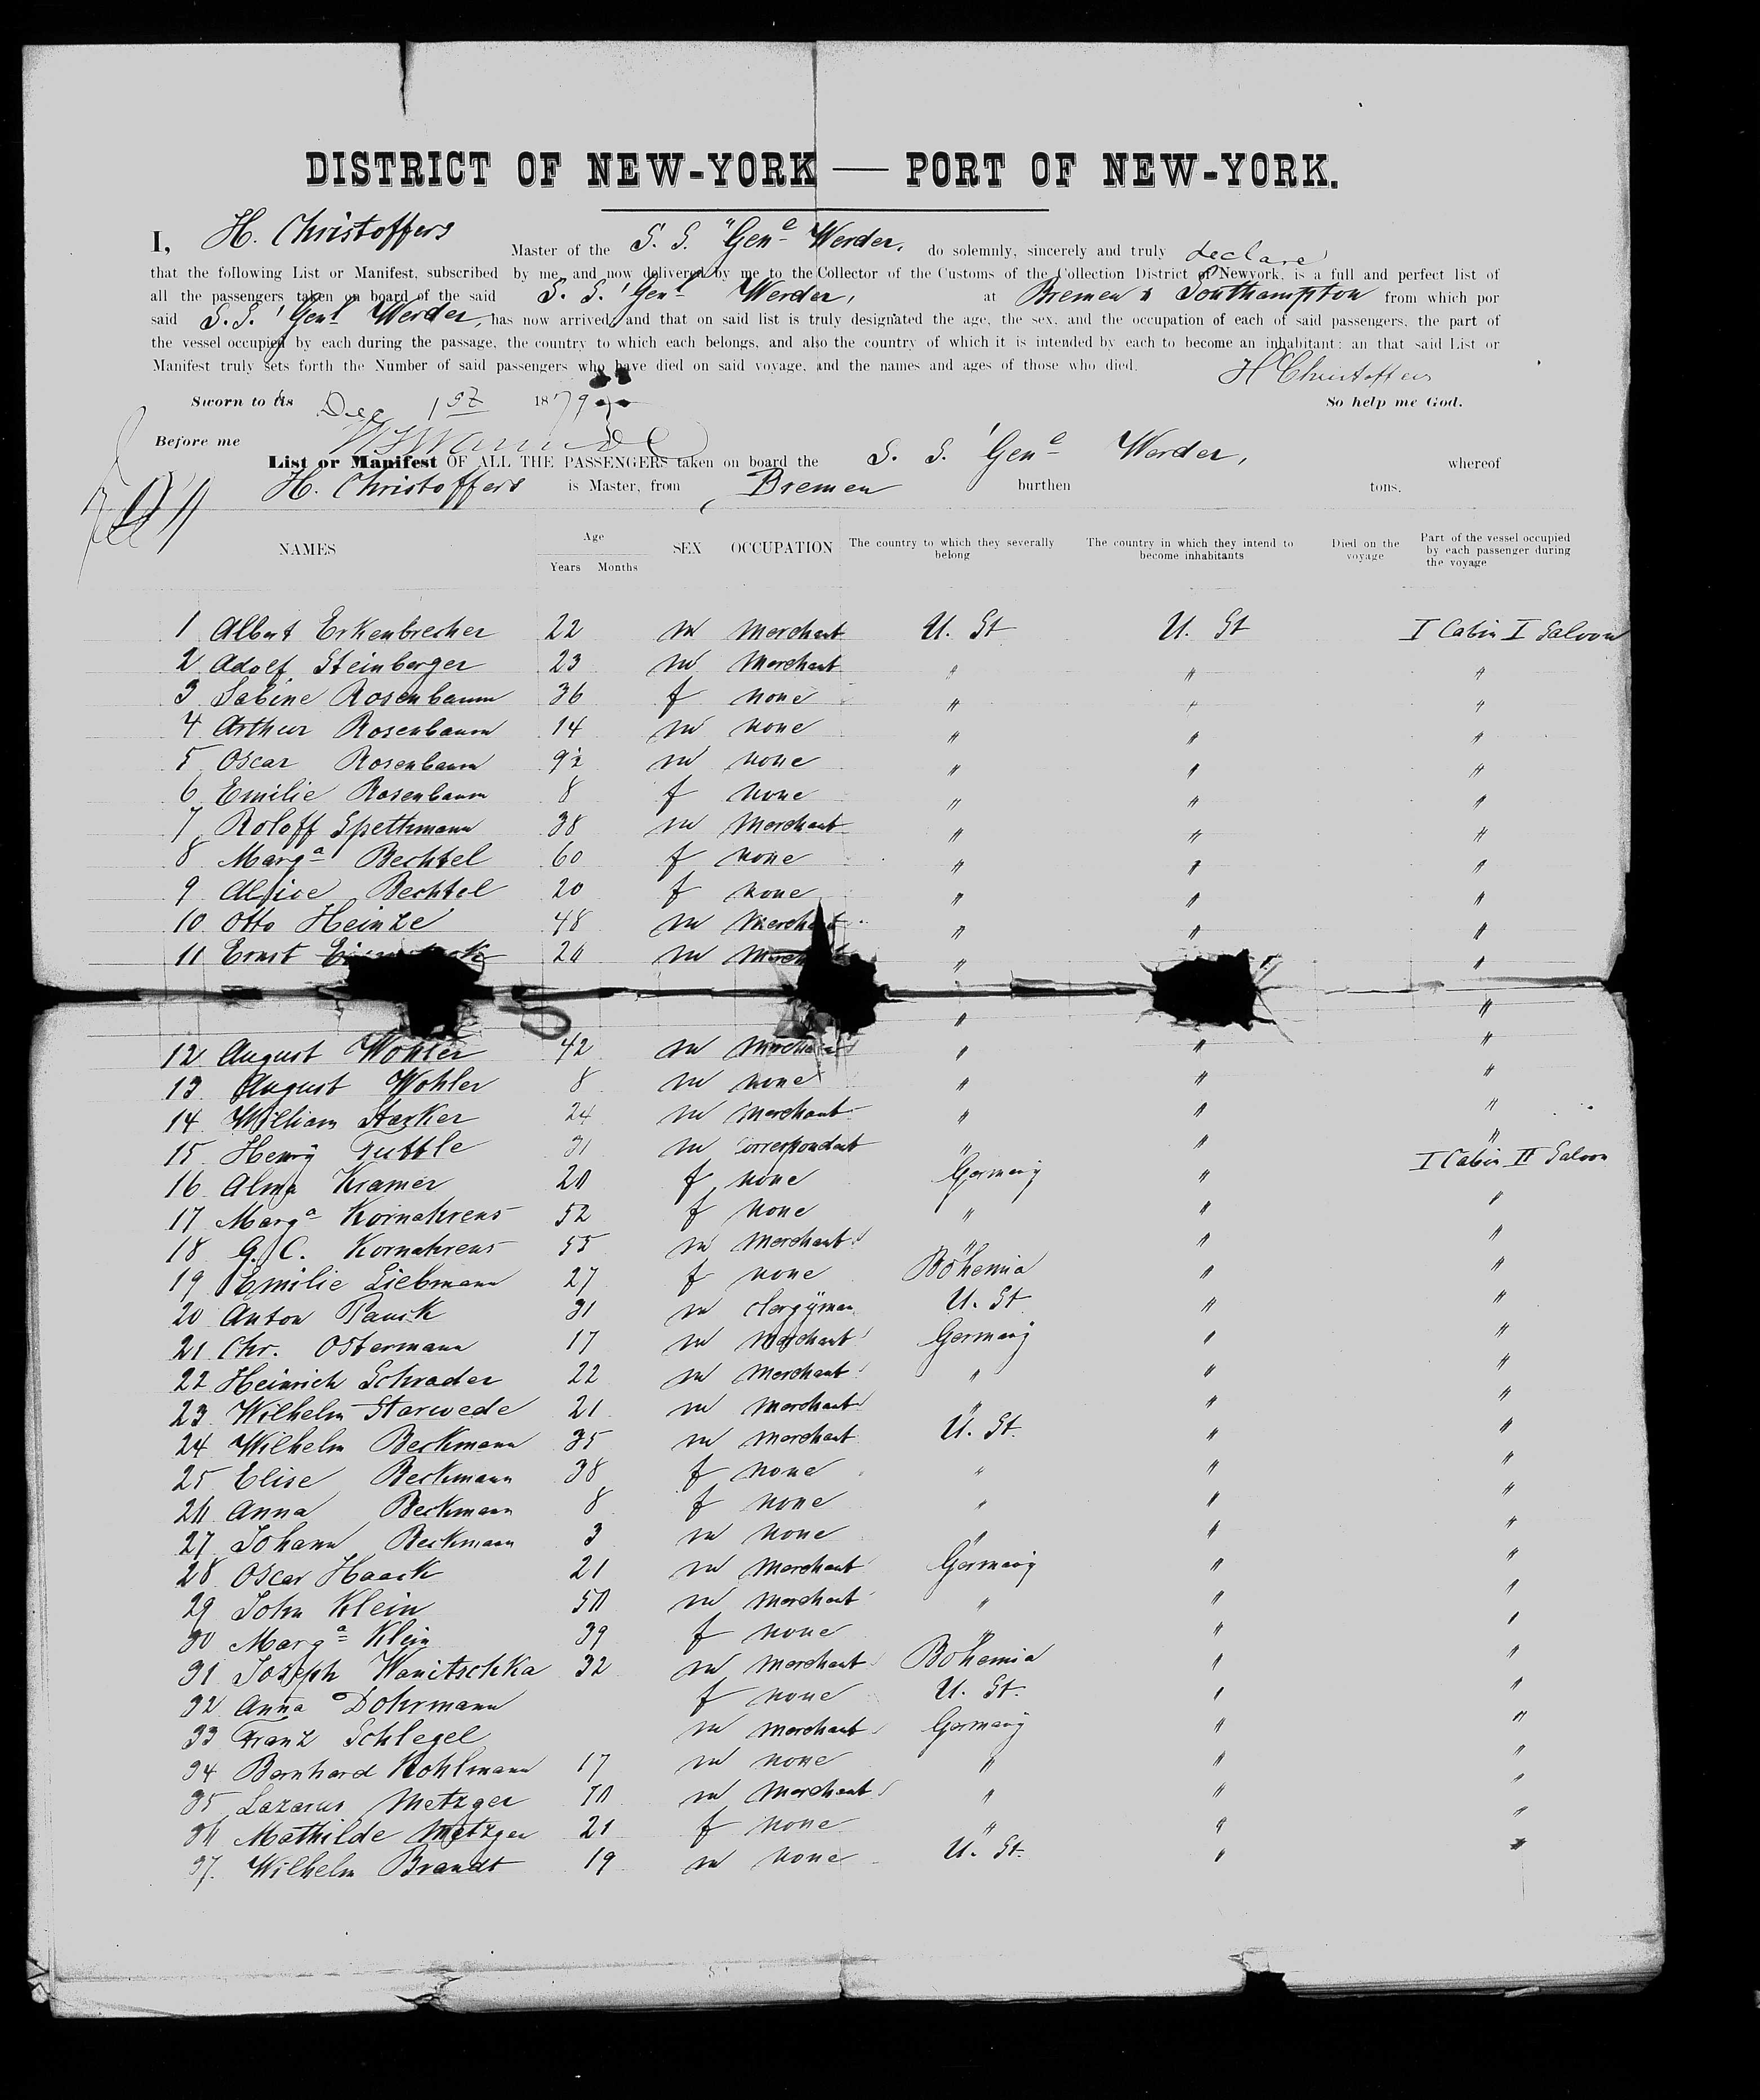 DISTRICT OF NEW-YORK — PORT OF NEW-YORK.
I, H. Christoffers Master of the S. S. "Genl Werder, do solemnly, sincerely and truly declare
that the following List or Manifest, subscribed by me, and now delivered by me to the Collector of the Customs of the Collection District of Newyork, is a full and perfect list of
all the passengers taken on board of the said S. S. 'Genl Werder, at Bremen & Southampton from which por
said S.S. 'Genl Werder, has now arrived, and that on said list is truly designated the age, the sex, and the occupation of each of said passengers, the part of
the vessel occupied by each during the passage, the country to which each belongs, and also the country of which it is intended by each to become an inhabitant: an that said List or
Manifest truly sets forth the Number of said passengers who have died on said voyage, and the names and ages of those who died. H Christoffers
Sworn to tis Dec 1st 1879 So help me God.
Before me
List or Manifest OF ALL THE PASSENGERS taken on board the S. S. 'Genl Werder, whereof
H. Christoffers is Master, from Bremen burthen tons.
NAMES Age Years Months SEX OCCUPATION The country to which they severally belong The country in which they intend to become inhabitants Died on the voyage Part of the vessel occupied by each passenger during the voyage
1 Albert Erkenbrecher 22 m Merchant U. St U. St I Cabin I Saloon
2 Adolf Steinberger 23 m Merchant " " "
3 Sabine Rosenbaum 36 f none " " "
4 Arthur Rosenbaum 14 m none " " "
5 Oscar Rosenbaum 9½ m none " " "
6 Emilie Rosenbaum 8 f none " " "
7 Roloff Spethmann 38 m Merchant " " "
8 Marga Bechtel 60 f none " " "
9 Alice Bechtel 20 f none " " "
10 Otto Heinze 48 m Merchant " " "
11 Ernst m Merchant " "
" "
12 August Wohler 42 m Merchant " " "
13 August Wohler 8 m none " " "
14 William Starker 24 m Merchant " " "
15 Henry Tuttle 31 m Correspondent " " "
16 Alma Kramer 20 f none Germany " I Cabin II Saloon
17 Marga Kornahrens 52 f none " " "
18 G. C. Kornahrens 55 m Merchant " " "
19 Emilie Liebmann 27 f none Bohemia " "
20 Anton Pauck 31 m Clergyman U. St " "
21 Chr. Ostermann 17 m Merchant Germany " "
22 Heinrich Schrader 22 m Merchant " " "
23 Wilhelm Starwede 21 m Merchant " " "
24 Wilhelm Beckmann 35 m Merchant U. St. " "
25 Elise Beckmann 38 f none " " "
26 Anna Beckmann 8 f none " " "
27 Johann Beckmann 3 m none " " "
28 Oscar Haack 21 m Merchant Germany " "
29 John Klein 50 m Merchant " " "
30 Marga Klein 39 f none " " "
31 Joseph Wanitschka 32 m Merchant Bohemia " "
32 Anna Dohrmann f none U. St. " "
33 Franz Schlegel m Merchant Germany " "
34 Bernhard Kohlmann 17 m none " " "
35 Lazarus Metzger m Merchant " " "
36 Mathilde Metzger 21 f none " " "
37. Wilhelm Brandt 19 m none U. St. " "